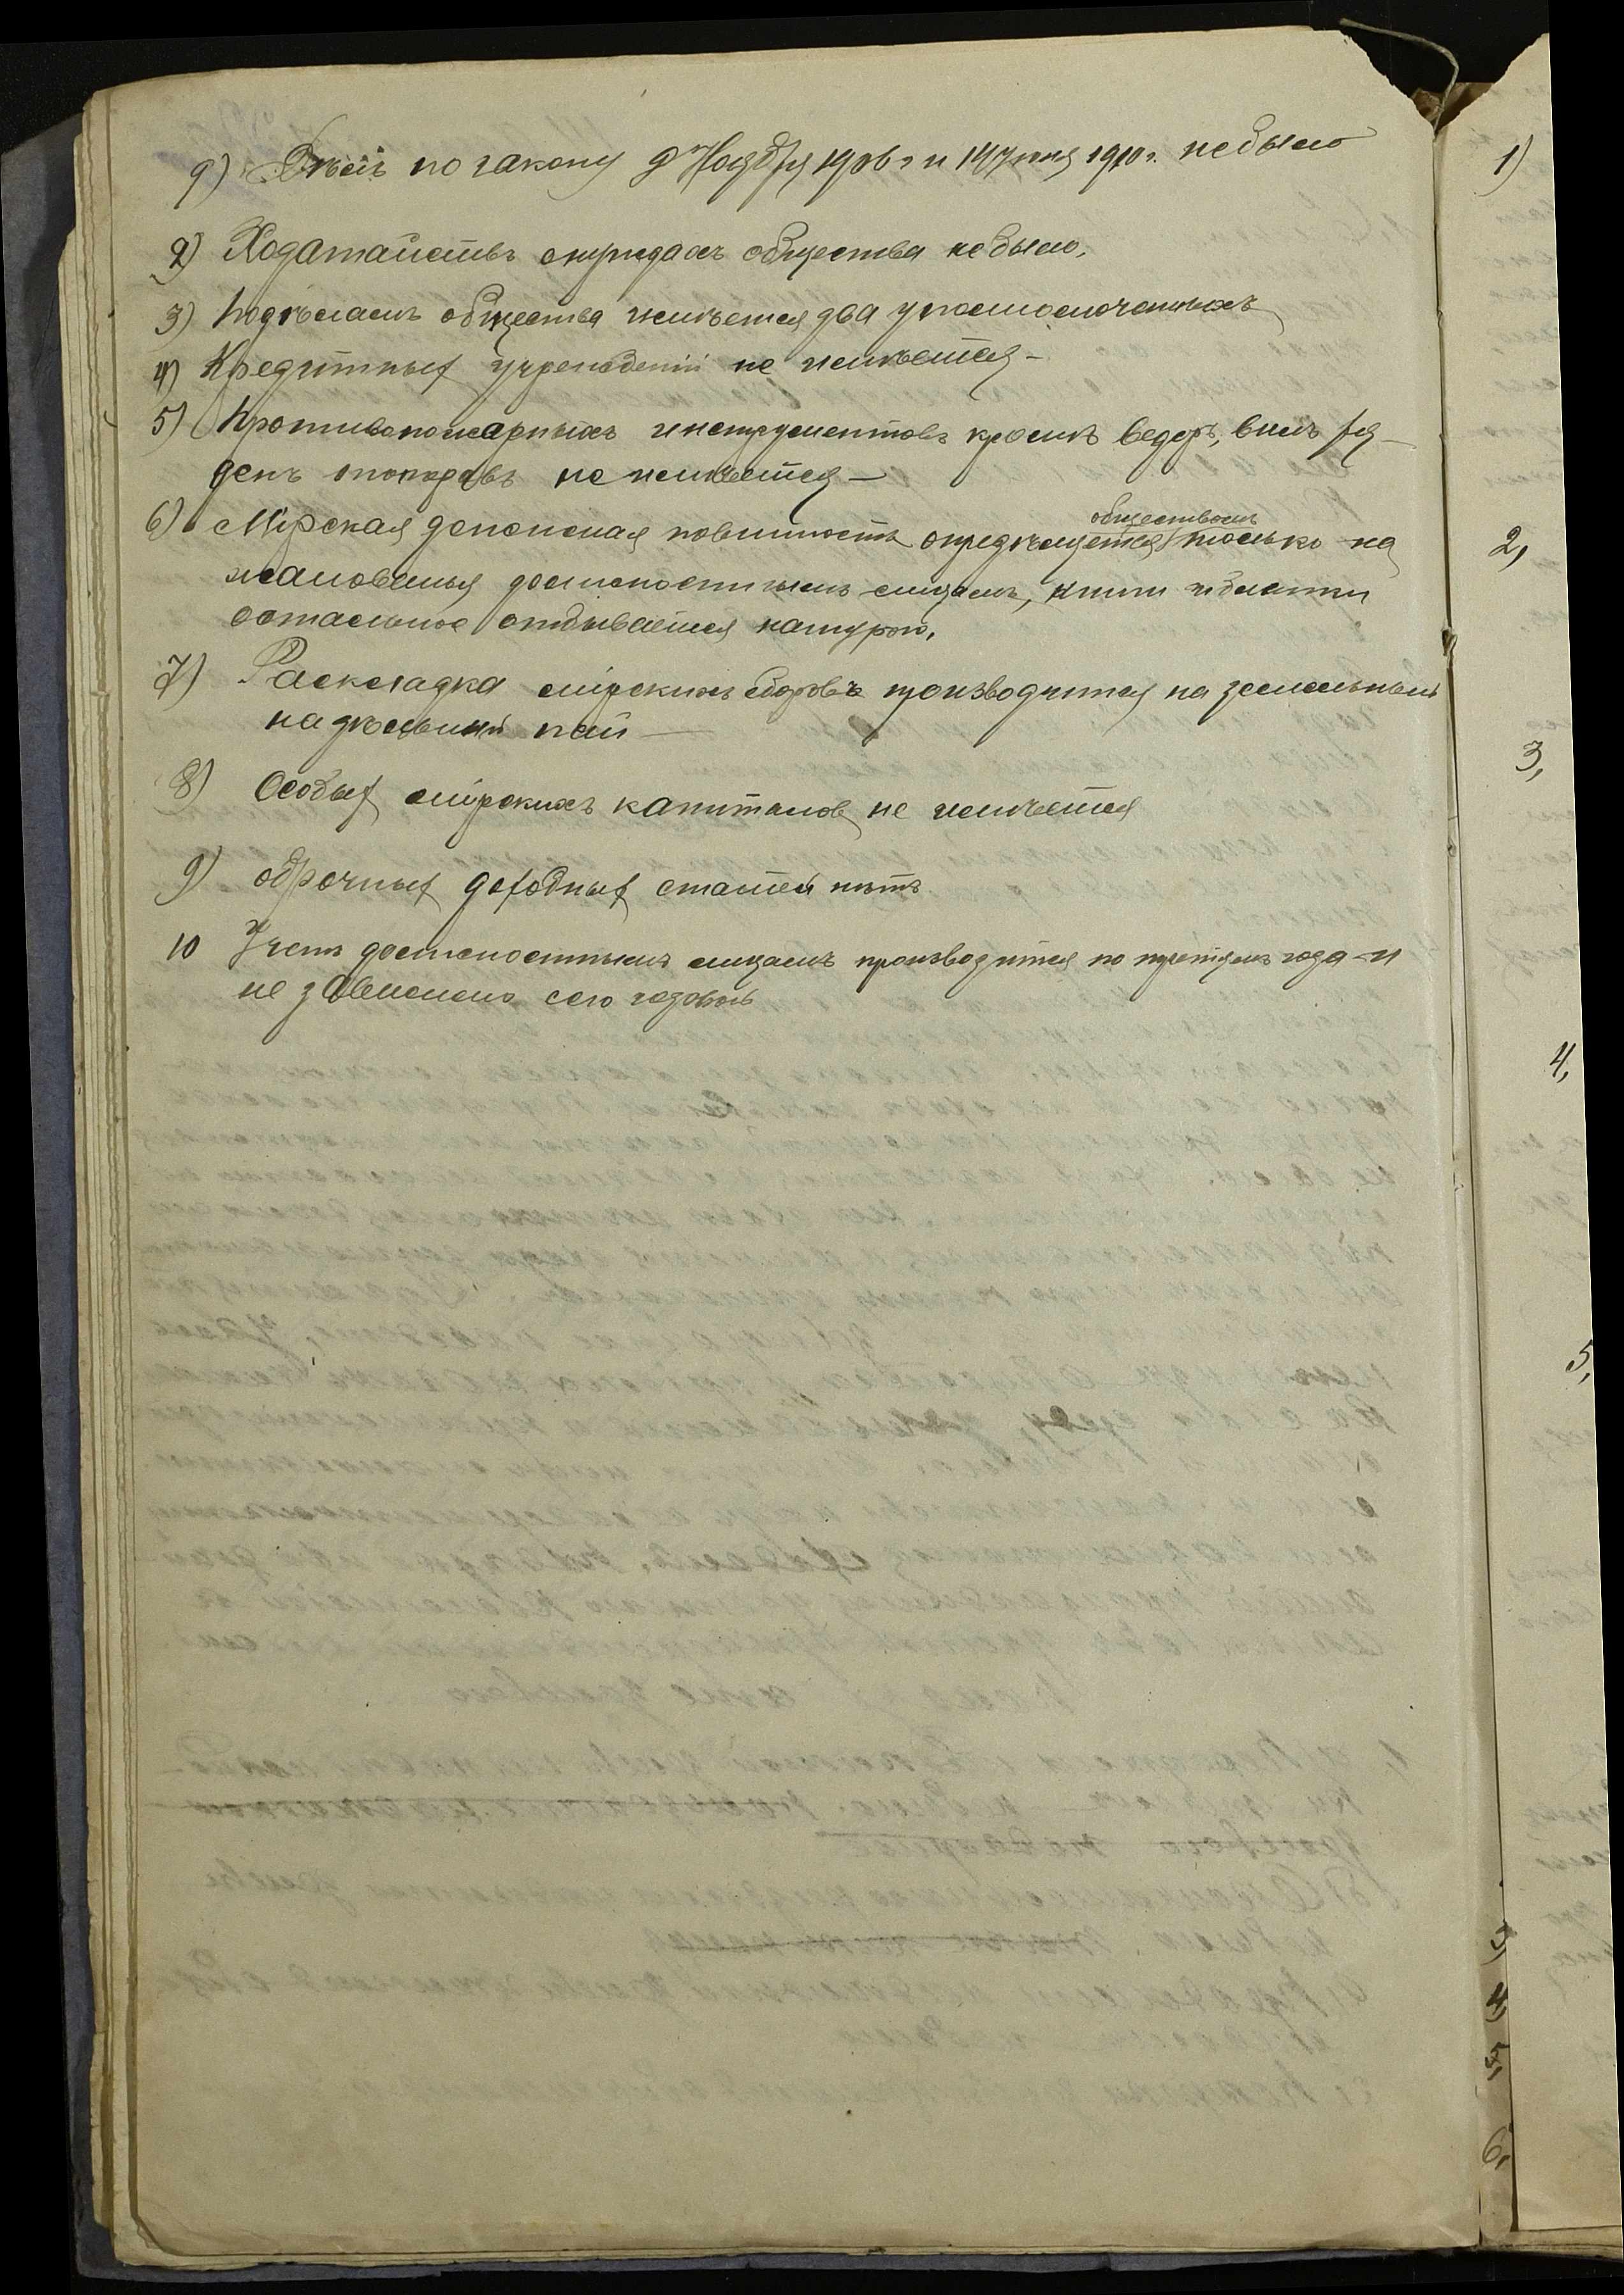 9) Дѣлъ по закону 9 Ноября 1906 г и 14 Іюня 1910 г. небыло
2) Ходатайствъ онуждахъ общества небыло.
3) Подѣламъ общества имѣется два уполномоченныхъ
4) Кредитных учрежденій не имѣется –
5) Противопожарныхъ инструментовъ кромѣ ведеръ, вилъ
не имѣется –
6) Мірская денежная повинность опредѣляется обществомъ только на
жалованья должностнымъ лицамъ, книги и бланки
остальное отбывается натурою.
7) Раскладка мірскихъ сборовъ производится на земельный
надѣльный пай
8) Особых мірскихъ капиталов не имѣется
9) оброчных доходных статей нѣтъ
10 Учетъ должностнымъ лицамъ производится по третямъ года и
не зависимо сего годовой
1)
2,
3,
4,
5,
3)
4)
5,
6,